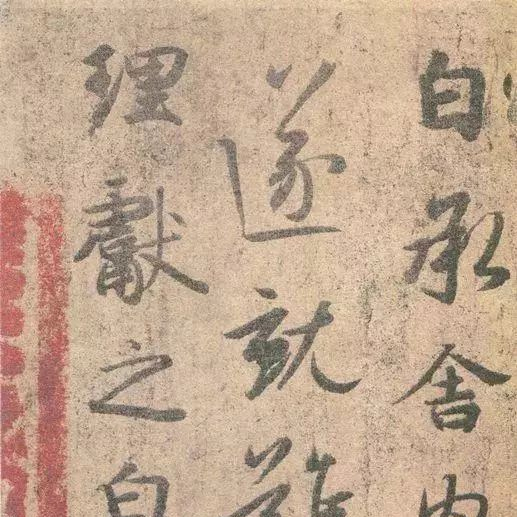 白承舍內
遂就難
理獻之白